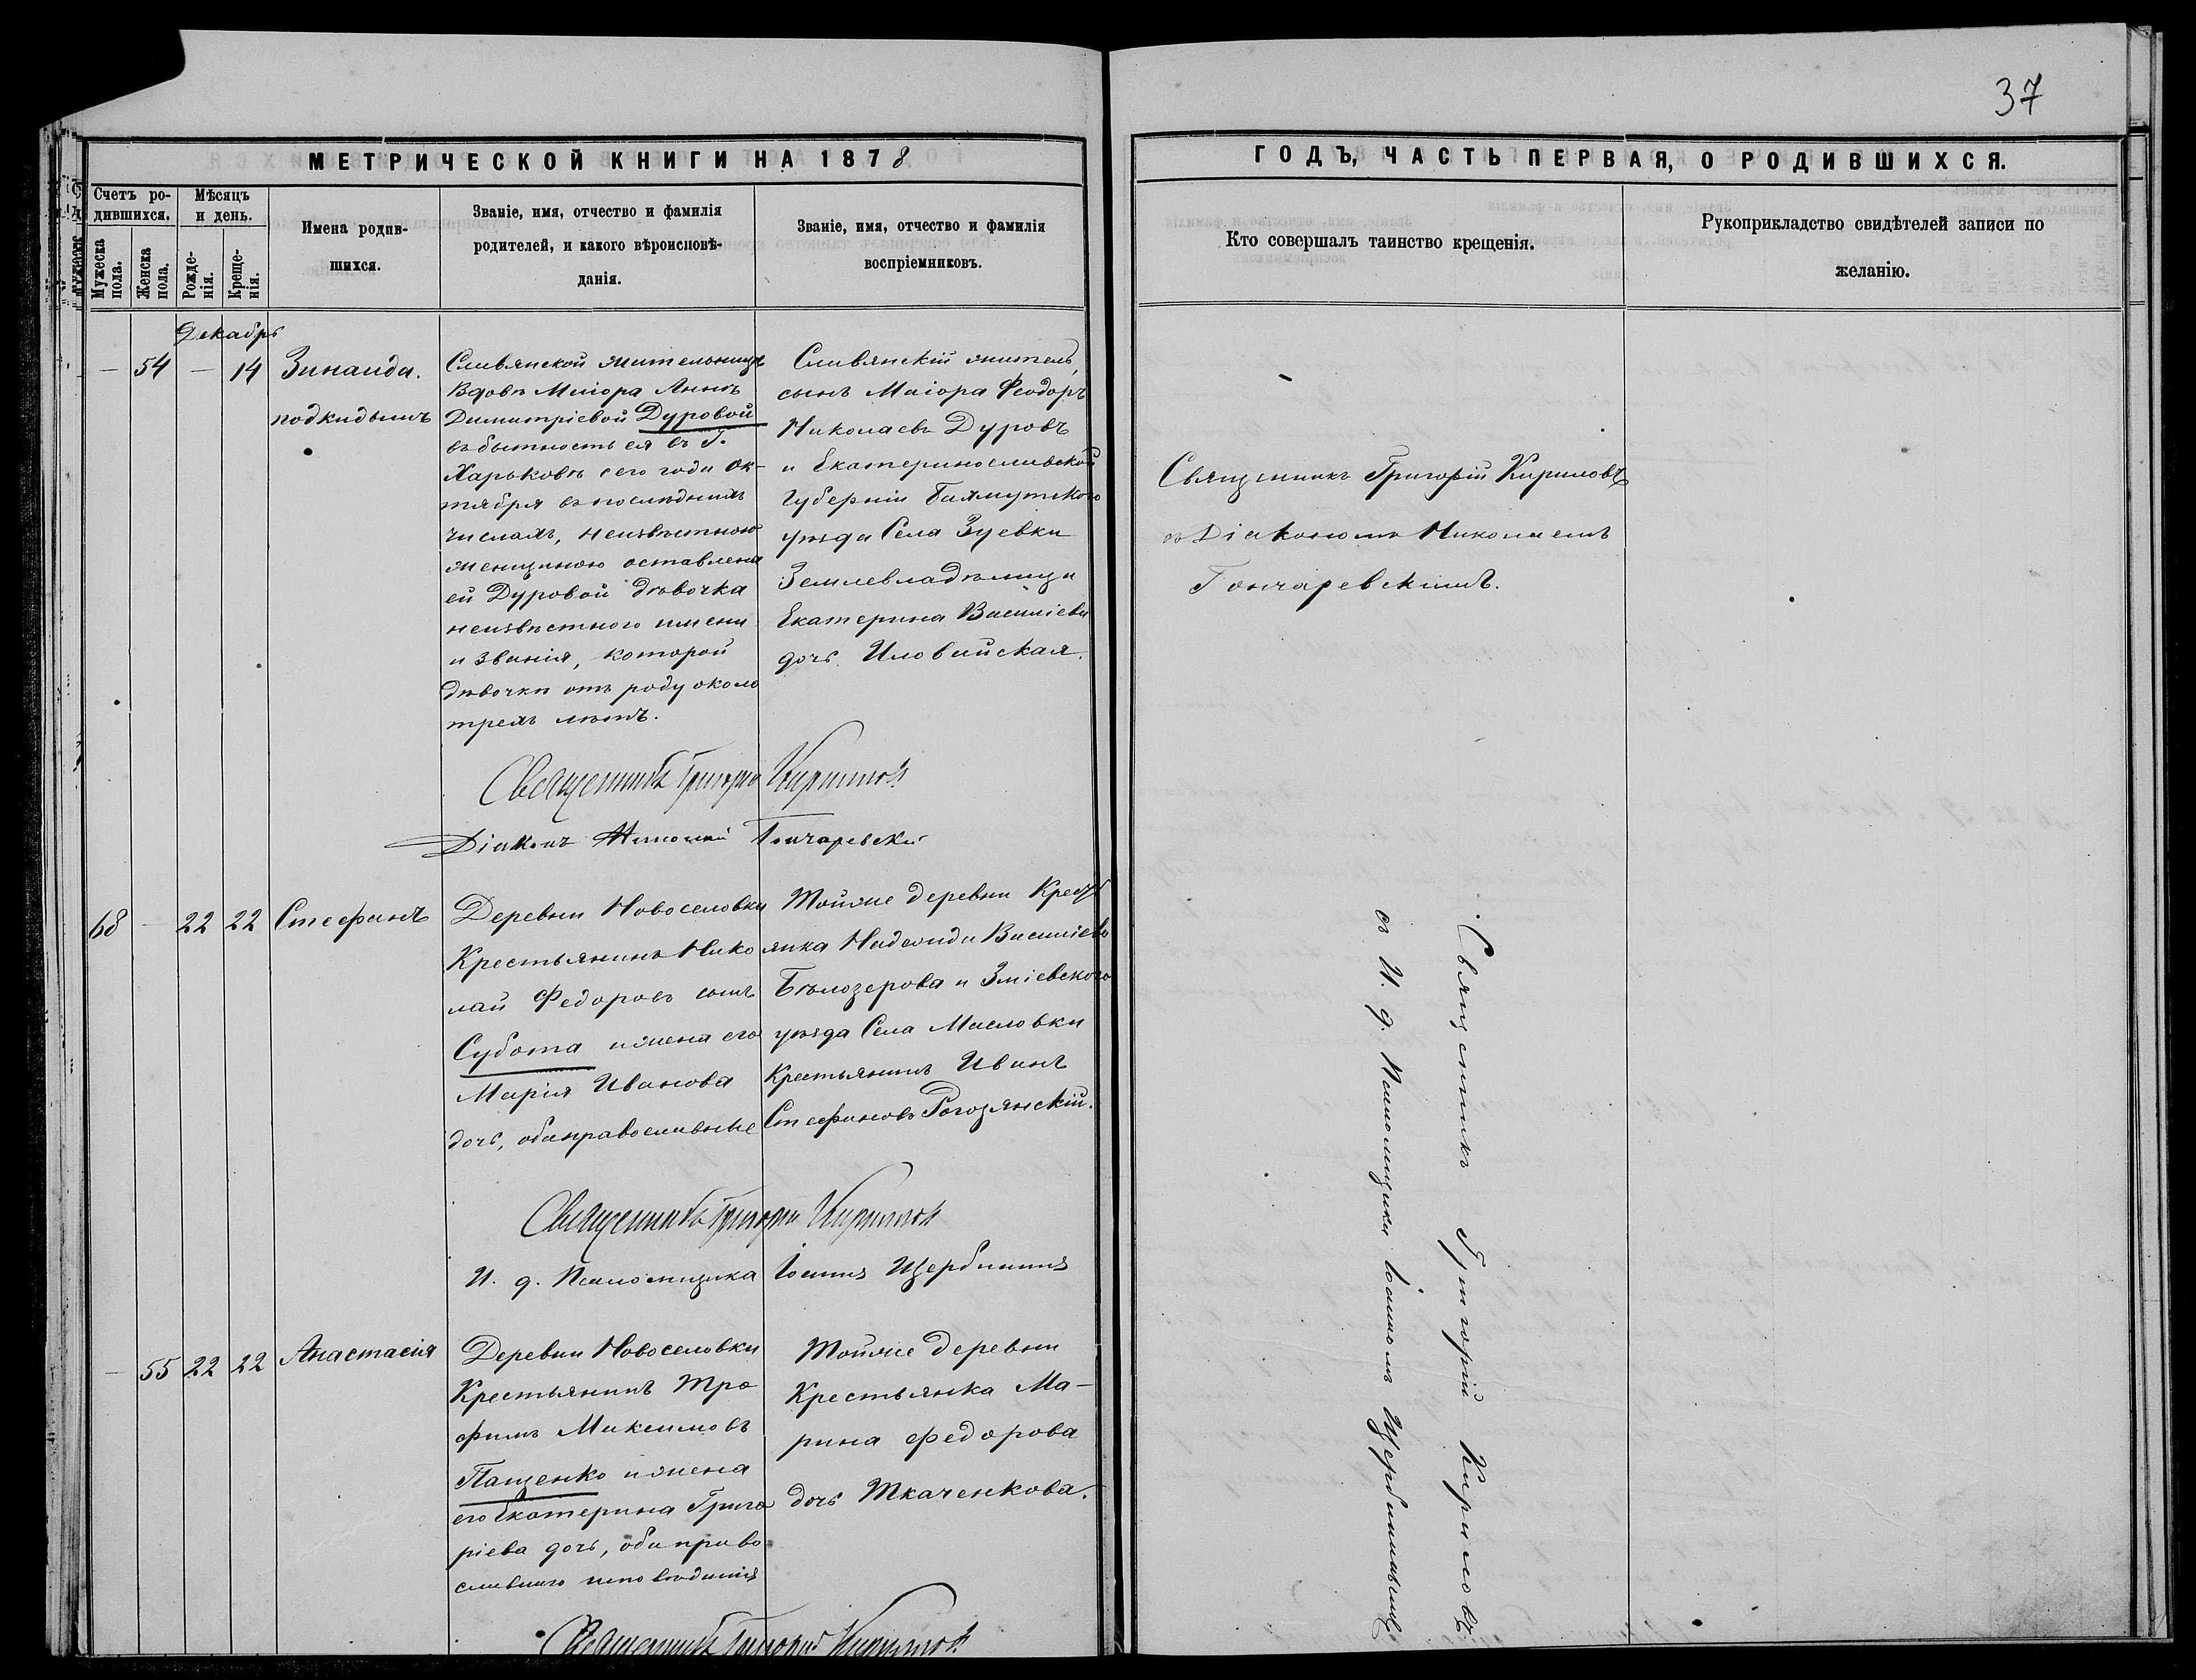 37
МЕТРИЧЕСКОЙ КНИГИ НА 1878
ГОДЪ, ЧАСТЬ ПЕРВАЯ, О РОДИВШИХСЯ.
Счетъ ро-
дившихся.
Мужеска
пола.
Женска
пола.
Мѣсяцъ
и день.
Рожде-
нія.
Креще-
нія.
Имена родив-
шихся.
Званіе, имя, отчество и фамилія
родителей, и какого вѣроисповѣ-
данія.
Званіе, имя, отчество и фамилія
воспріемниковъ.
Кто совершалъ таинство крещенія.
Рукоприкладство свидѣтелей записи по
желанію.
Декабрь
— 54 — 14
Зинаида.
подкидышъ
Славянской жительницѣ
Вдовѣ Маіора Аннѣ
Димитріевой Дуровой
въ бытность ея въ г.
Харьковѣ сего года ок-
тября въ послѣднихъ
числахъ, неизвѣстною
женщиною оставлена
ей Дуровой дѣвочка
неизвѣстнаго имени
и званія, которой
дѣвочки отъ роду около
трехъ лѣтъ.
Славянскій житель,
сынъ Маіора Феодоръ
Николаевъ Дуровъ
и Екатеринославской
Губерніи Бахмутскаго
уѣзда Села Зуевки
Землевладѣлица
Екатерина Василіева
дочь Иловайская.
Священникъ Григорій Кириловъ
съ Діакономъ Николаемъ
Гончаревскимъ.
Священникъ Григорій Кириловъ
Діаконъ Николай Гончаревскій
68 — 22 22
Стефанъ
Деревни Новоселовки
Крестьянинъ Нико
лай Федоровъ сынъ
Субота и жена его
Марія Иванова
дочь, оба православные
Тойже деревни Крест
янка Надежда Василіева
Бѣлозерова и Зміевскаго
уѣзда Села Масловки
Крестьянинъ Иванъ
Стефановъ Рогозянскій.
Священникъ Григорій Кириловъ
съ И. д. Псаломщика Іоанномъ Щербининымъ
Священникъ Григорій Кириловъ
И. д. Псаломщика Іоаннъ Щербининъ
— 55 22 22
Анастасія
Деревни Новоселовки
Крестьянинъ Тро
фимъ Максимовъ
Пащенко и жена
его Екатерина Григо
ріева дочь, оба право
славнаго исповѣданія
Тойже деревни
Крестьянка Ма-
рина Федорова
дочь Ткаченкова.
Священникъ Григорій Кириловъ